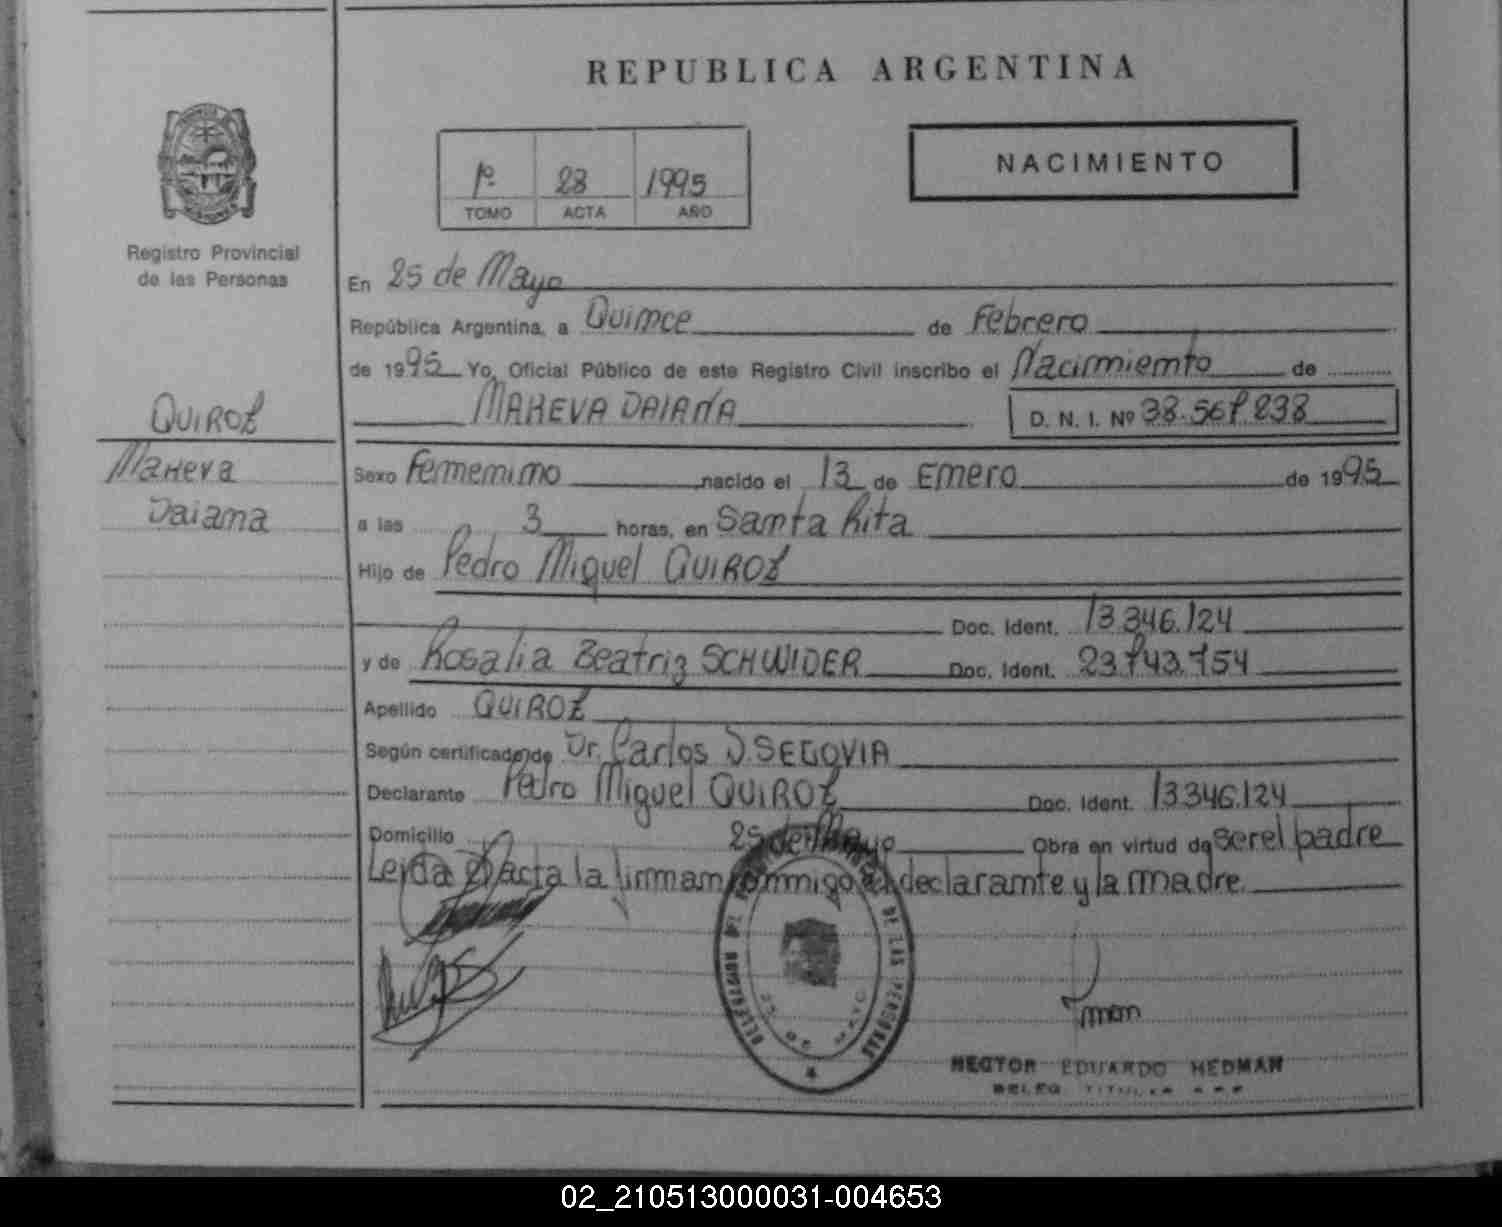 REPUBLICA ARGENTINA
1º 28 1995
TOMO ACTA AÑO
NACIMIENTO
Registro Provincial
de las Personas
En 25 de Mayo
República Argentina, a Quimce de Febrero
de 1995 Yo, Oficial Público de este Registro Civil inscribo el Nacimiemto de
MAHEVA DAIANA D. N. I. Nº
QUIROZ
Maheva
Daiama
Sexo Fememimo nacido el 13 de Emero de 1995
a las 3 horas, en Samta Rita
Hijo de Pedro Miguel QUIROZ
Doc. Ident. 13.346.124
y de Rosalia Beatriz SCHWIDER Doc. Ident.
Apellido QUIROZ
Según certificado de Dr. Carlos D. SEGOVIA
Declarante Pedro Miguel QUIROZ Doc. Ident. 13346.124
Domicilio 25 de Mayo Obra en virtud de ser el padre
Leida el acta la firmam commigo el declaramte y la madre.
DE LAS PERSONAS
25 DE MAYO
HECTOR EDUARDO HEDMAN
DELEG. TITULAR
02_210513000031-004653